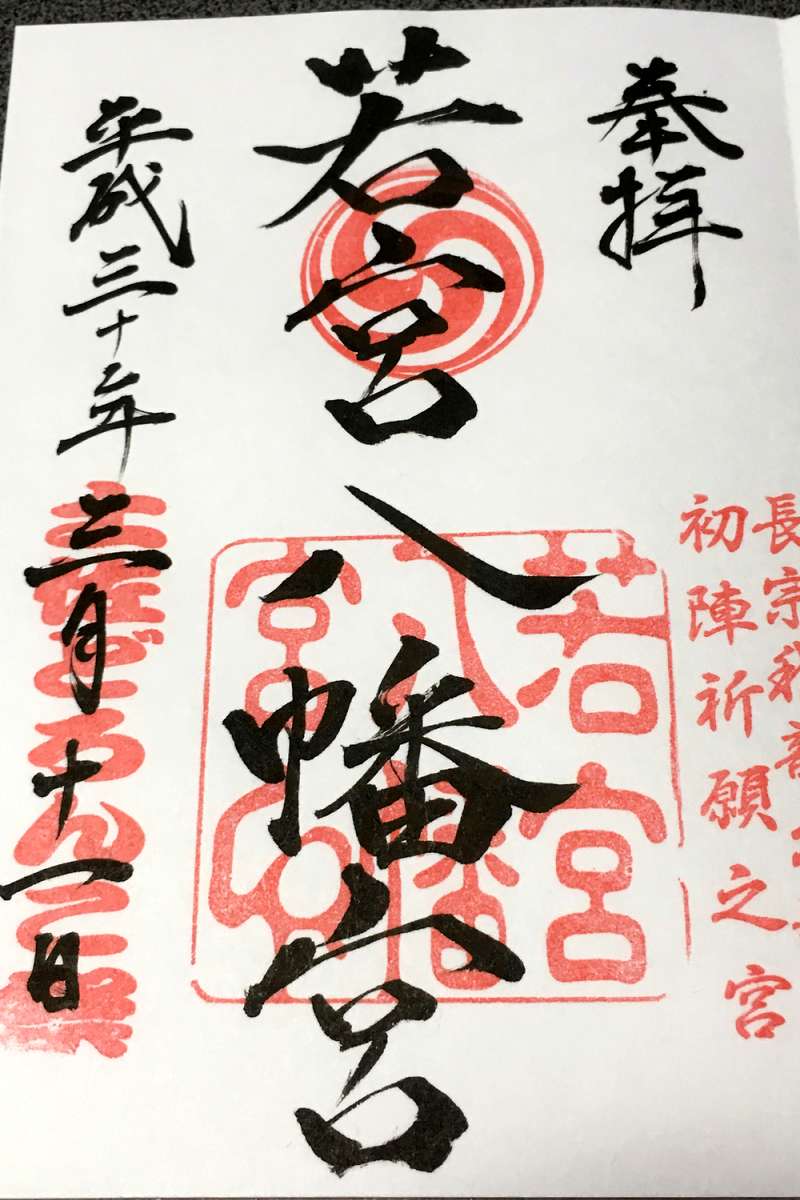 長宗我部
初陣祈願之宮
奉拝
若宮八幡宮
若宮
八幡
宮印
平成三十年三月十一日
どろんこ祭